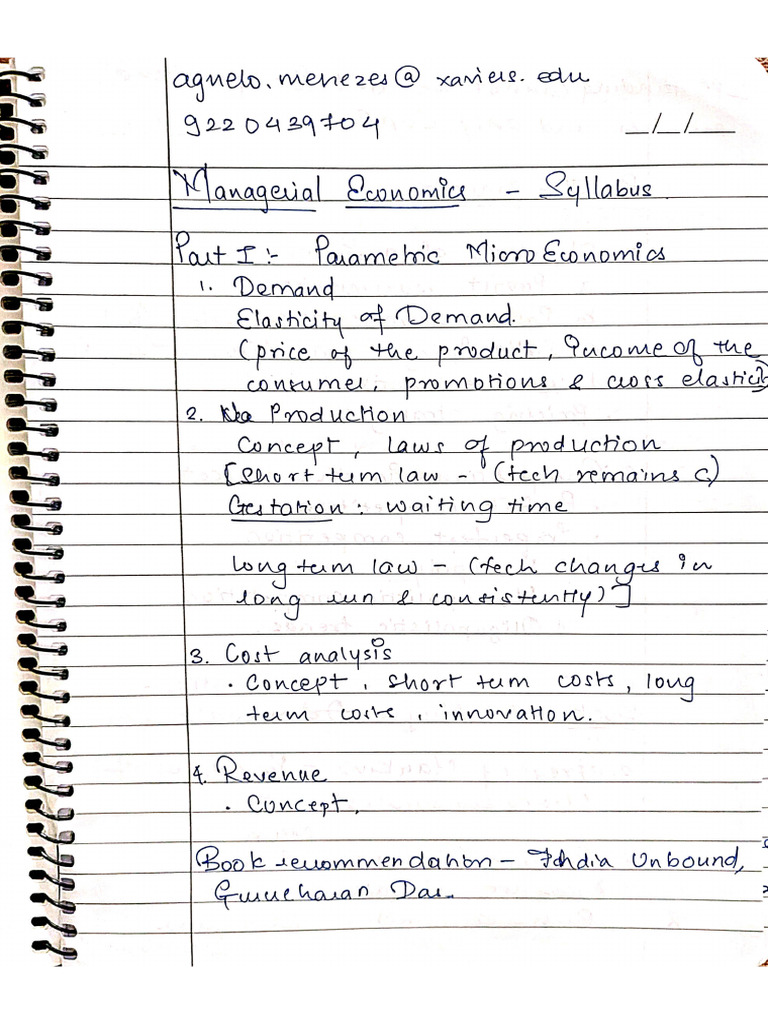 agnelo.menezes@xaviers.edu
9220439704
_/_/__
Managerial Economics - Syllabus
Part I :- Parametric MicroEconomics
1. Demand
Elasticity of Demand.
(price of the product, Income of the
consumer, promotions & cross elasticity)
2. Production
Concept, laws of production
[Short term law - (tech remains c)
Gestation: waiting time
long term law - (tech changes in
long run & consistently)]
3. Cost analysis
. Concept, short term costs, long
term costs, innovation.
4. Revenue
. Concept,
Book recommendation - India Unbound,
Gurucharan Das.